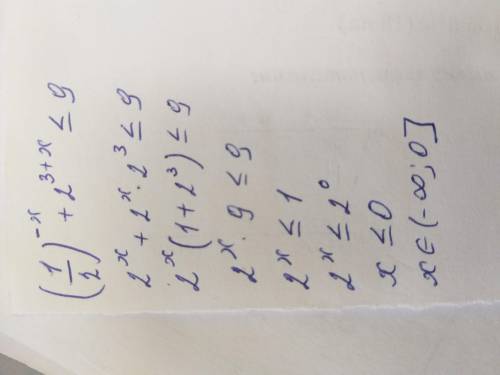 (1/2)^{-x} + 2^{3+x} ≤ 9
2^x + 2^x · 2^3 ≤ 9
2^x (1 + 2^3) ≤ 9
2^x · 9 ≤ 9
2^x ≤ 1
2^x ≤ 2^0
x ≤ 0
x ∈ (-∞; 0]